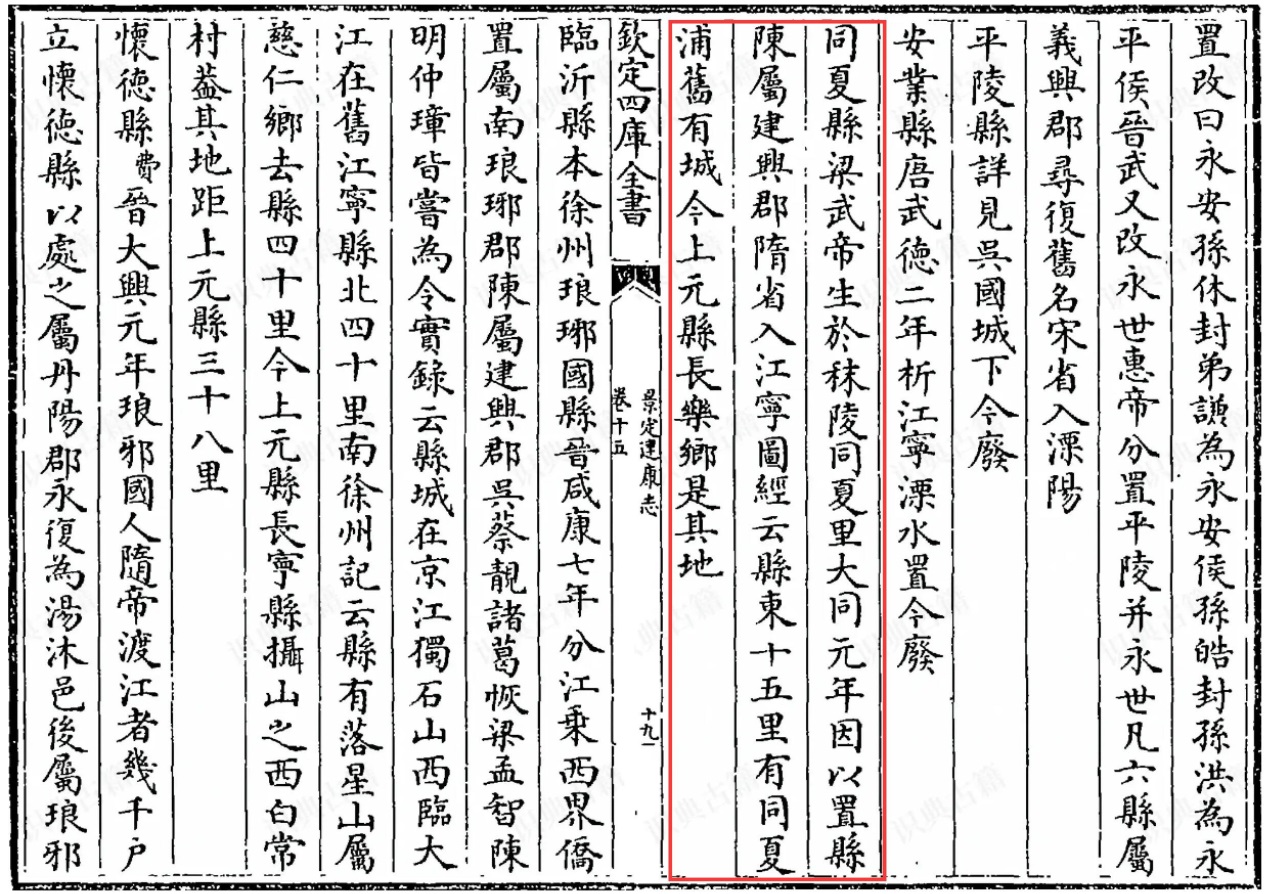 置改曰永安孫休封弟謙為永安侯孫皓封孫洪為永
平侯晉武又改永世惠帝分置平陵并永世凡六縣屬
義興郡尋復舊名宋省入溧陽
平陵縣詳見吳國城下今廢
安業縣唐武德二年析江寧溧水置今廢
同夏縣梁武帝生於秣陵同夏里大同元年因以置縣
陳屬建興郡隋省入江寧圖經云縣東十五里有同夏
浦舊有城今上元縣長樂鄉是其地
欽定四庫全書
景定建康志
卷十五
十九
臨沂縣本徐州琅琊國縣晉咸康七年分江乘西界僑
置屬南琅琊郡陳屬建興郡吳蔡靚諸葛恢梁孟智陳
明仲璋皆嘗為令實錄云縣城在京江獨石山西臨大
江在舊江寧縣北四十里南徐州記云縣有落星山屬
慈仁鄉去縣四十里今上元縣長寧縣攝山之西白常
村葢其地距上元縣三十八里
懷德縣費晉大興元年琅邪國人隨帝渡江者幾千戶
立懷德縣以處之屬丹陽郡永復為湯沐邑後屬琅邪